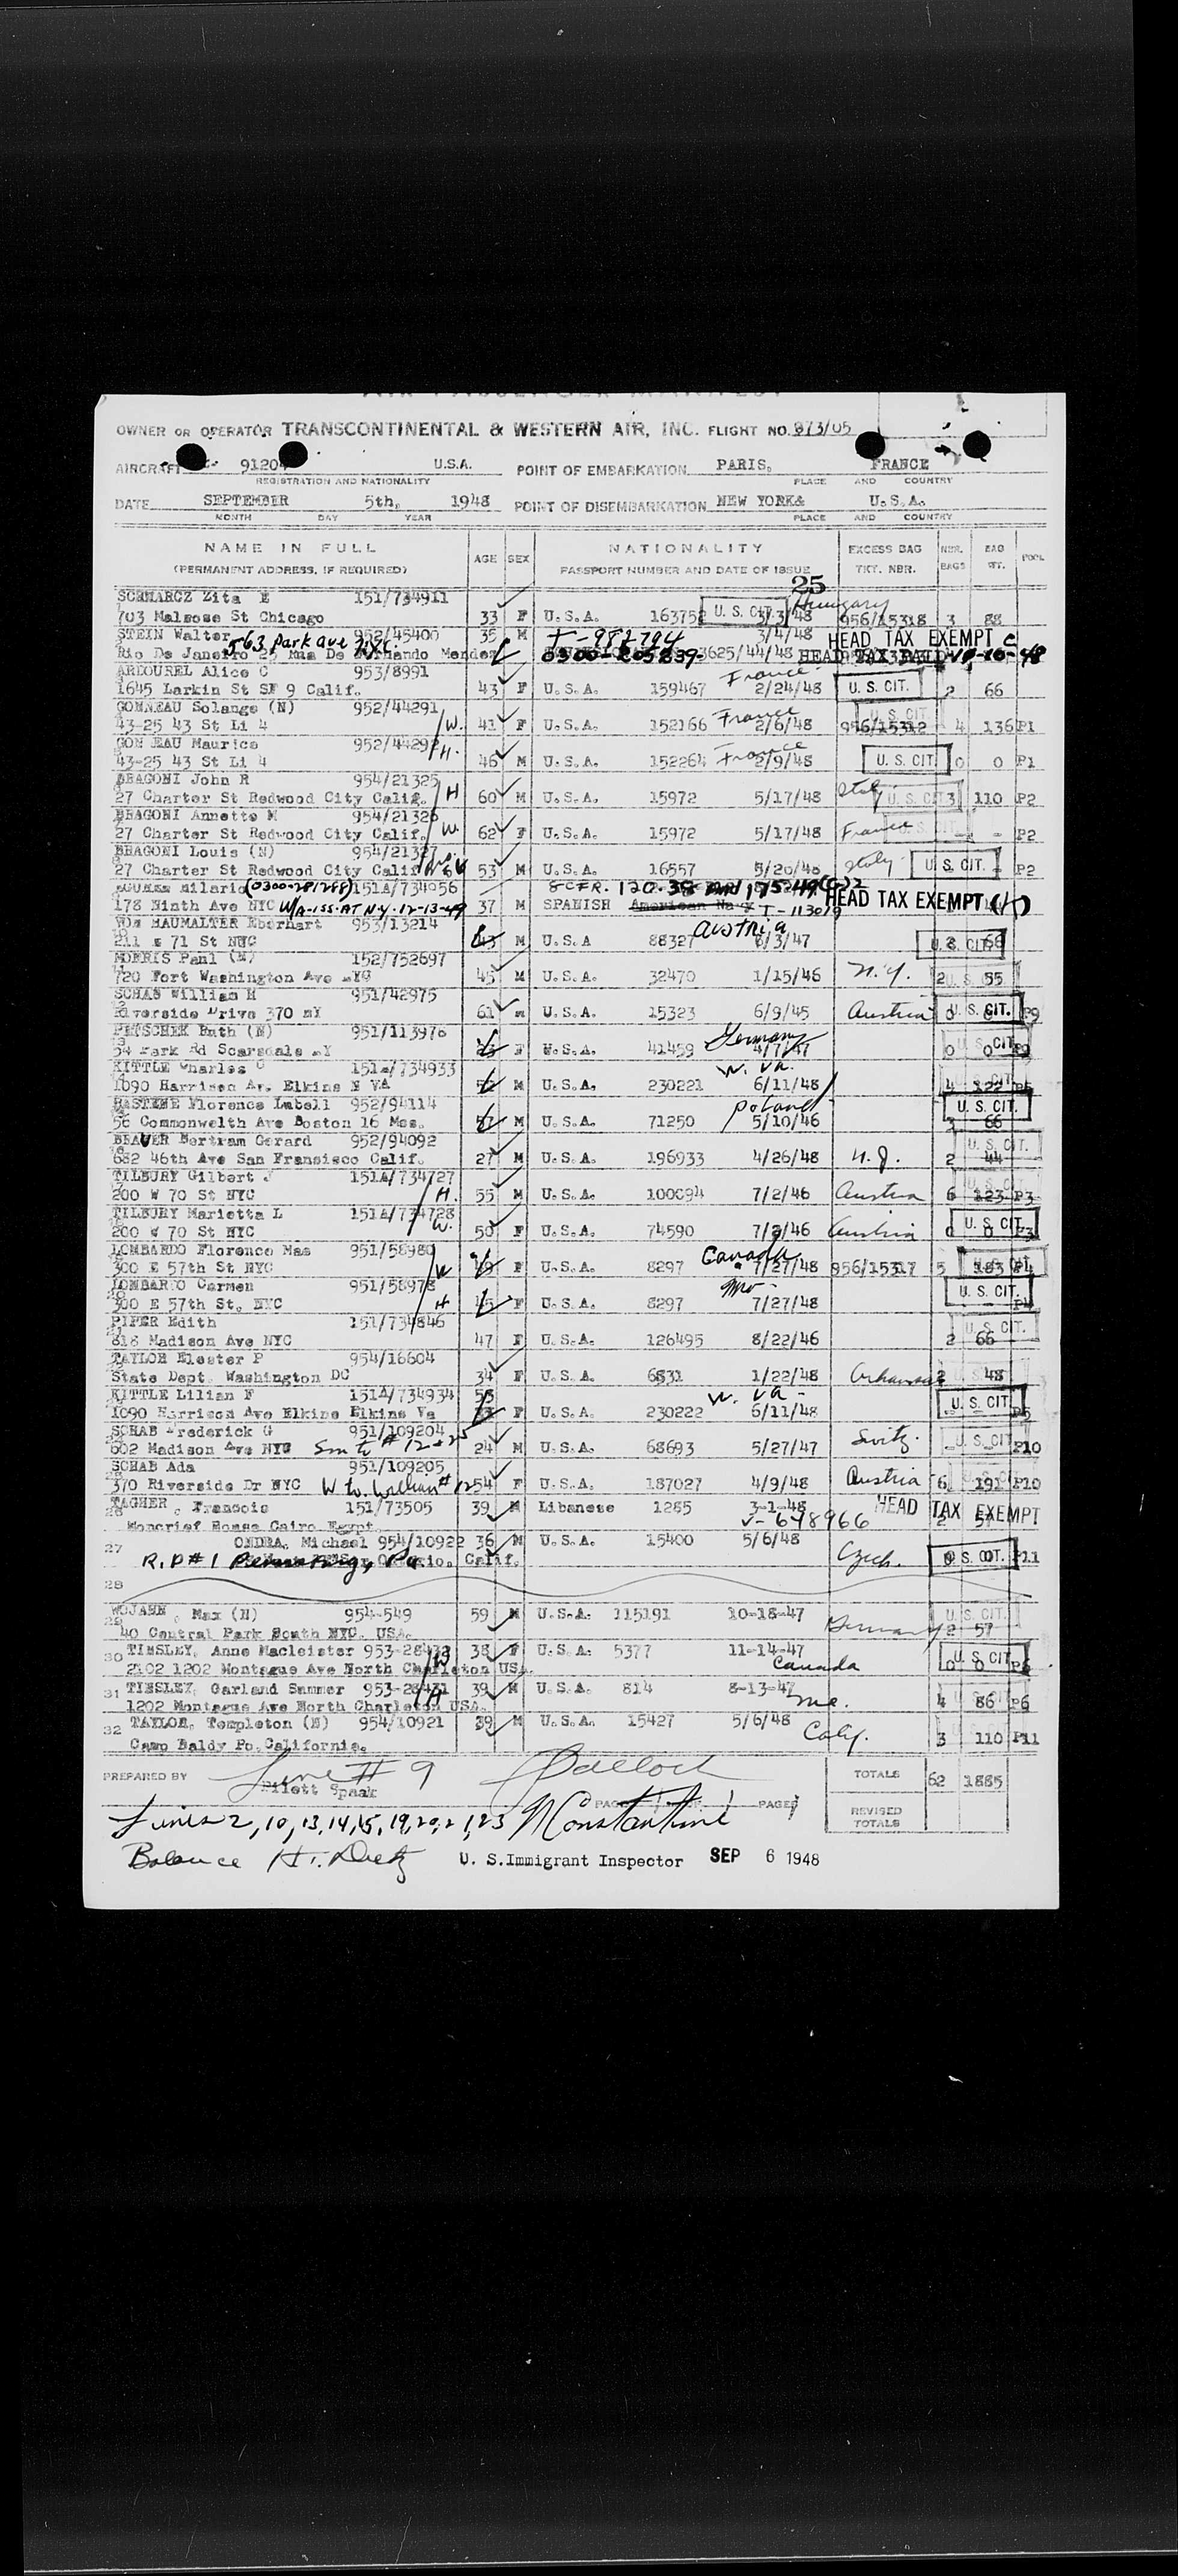 AIR PASSENGER MANIFEST
OWNER OR OPERATOR TRANSCONTINENTAL & WESTERN AIR, INC. FLIGHT NO. 973/05
AIRCRAFT 91204 U.S.A. POINT OF EMBARKATION PARIS, FRANCE
REGISTRATION AND NATIONALITY PLACE AND COUNTRY
DATE SEPTEMBER 5th, 1948 POINT OF DISEMBARKATION NEW YORK& U.S.A.
MONTH DAY YEAR PLACE AND COUNTRY
NAME IN FULL AGE SEX NATIONALITY EXCESS BAG NBR. BAG POOL
(PERMANENT ADDRESS, IF REQUIRED) PASSPORT NUMBER AND DATE OF ISSUE TKT. NBR. BAGS WT.
25
SCHWARCZ Zita E 151/734911 Hungary
703 Malrose St Chicago 33 F U.S.A. 163752 U. S. CIT. 3/3/48 956/15318 3 88
STEIN Walter 952/45400 35 M T-982794 3/4/48 HEAD TAX EXEMPT
563 Park Ave NYC
Rio De Janeiro 25 Rua De Fernando Mendez 0300-205839 HEAD TAX PAID 10-26-48
ARDOUREL Alice C 953/8991 France
1645 Larkin St SF 9 Calif. 43 F U.S.A. 159467 2/24/48 U. S. CIT. 2 66
GONNEAU Solange (N) 952/44291 U. S. CIT.
43-25 43 St Li 4 W. 41 F U.S.A. 152166 France 2/6/48 956/15312 4 136 P1
GON EAU Maurice 952/44292
43-25 43 St Li 4 H. 46 M U.S.A. 152264 France 2/9/48 U. S. CIT. 0 0 P1
BRAGONI John R 954/21325
27 Charter St Redwood City Calif. H 60 M U.S.A. 15972 5/17/48 Italy U. S. CIT. 3 110 P2
BRAGONI Annette M 954/21326
27 Charter St Redwood City Calif. W. 62 F U.S.A. 15972 5/17/48 France U. S. CIT. - - P2
BRAGONI Louis (N) 954/21327
27 Charter St Redwood City Calif 53 M U.S.A. 16557 5/20/48 Italy U. S. CIT. P2
Hilario (0300-281288) 151A/734956 8 CFR. 120.38 and 175.49(G)2
178 Ninth Ave NYC W/A-155-AT N.Y. 12-13-49 37 M SPANISH T-113019 HEAD TAX EXEMPT
VON HAUMALTER Eberhart 953/13214 Austria
211 E 71 St NYC 43 M U.S.A 88327 6/3/47 U. S. CIT. 66
MORRIS Paul (N) 152/752697
720 Fort Washington Ave NYC 45 M U.S.A. 32470 1/15/46 N.Y. 2 U. S. 55
SCHAB William H 951/42975
Riverside Drive 370 NY 61 M U.S.A. 15323 6/9/45 Austria 0 U. S. CIT. P9
PETSCHEK Ruth (N) 951/113976 Germany
54 Park Rd Scarsdale NY F U.S.A. 41459 4/7/47 0 U. S. CIT. 0 P9
KITTLE Charles O 151A/734933 W. Va.
1090 Harrison Av. Elkins W VA M U.S.A. 230221 6/11/48 4 122 P5
Florence Labell 952/94114 Poland U. S. CIT.
56 Commonwelth Ave Boston 16 Mas. 57 M U.S.A. 71250 5/10/46 3 66
BEAVER Bertram Gerard 952/94092 U. S. CIT.
682 46th Ave San Fransisco Calif. 27 M U.S.A. 196933 4/26/48 N.J. 2 44
TILBURY Gilbert J 151A/734727
200 W 70 St NYC H. 55 M U.S.A. 100094 7/2/46 Austria 6 123 P3
TILBURY Marietta L 151A/734728
200 W 70 St NYC W. 50 F U.S.A. 74590 7/2/46 Austria 0 U. S. CIT. 0 P3
LOMBARDO Florence Mae 951/58980 Canada
300 E 57th St NYC W F U.S.A. 8297 7/27/48 956/15317 5 U. S. CIT. 183 P4
LOMBARDO Carmen 951/58978
300 E 57th St. NYC H 45 F U.S.A. 8297 7/27/48 U. S. CIT. P4
PIPER Edith 151/734846
818 Madison Ave NYC 47 F U.S.A. 126495 8/22/46 2 U. S. CIT. 66
TAYLOR Elester P 954/16604
State Dept Washington DC 34 F U.S.A. 6831 1/22/48 Arkansas 2 48
KITTLE Lilian F 151A/734934 W. Va -
1090 Harrison Ave Elkins Elkins Va F U.S.A. 230222 6/11/48 U. S. CIT. P5
SCHAB Frederick G 951/109204
602 Madison Ave NYC Son to # 12 & 25 24 M U.S.A. 68693 5/27/47 Switz. U. S. CIT. P10
SCHAB Ada 951/109205
370 Riverside Dr NYC W to William # 12 54 F U.S.A. 187027 4/9/48 Austria 6 191 P10
26 TAGHER , Francois 151/73505 39 M Libanese 1285 3-1-48 HEAD TAX EXEMPT
Moncrief House Cairo Egypt V-648966 2 57
27 ONDRA, Michael 954/10922 36 M U.S.A. 15400 5/6/48
R.D # 1 Calif. Czech. U. S. CIT. P11
28
29 WOJAHN , Max (N) 954-549 59 M U.S.A. 115191 10-18-47 U. S. CIT.
40 Central Park South NYC. USA. Germany 2 57
30 TINSLEY, Anne Macleister 953-28432 W 38 F U.S.A. 5377 11-14-47 U. S. CIT.
2102 1202 Montague Ave North Charleton USA. Canada 0 0 P6
31 TINSLEY, Garland Sammer 953-28431 H 39 M U.S.A. 814 8-13-47
1202 Montague Ave North Charleton USA. 4 86 P6
32 TAYLOR, Templeton (N) 954/10921 39 M U.S.A. 15427 5/6/48
Camp Baldy Po.California. Calif. 3 110 P11
PREPARED BY Line # 9 TOTALS 62 1885
Pilett Spaak PAGE PAGES
Lines 2, 10, 13, 14, 15, 19, 20, 21, 23 N Constantine REVISED TOTALS
Balance U. S.Immigrant Inspector SEP 6 1948